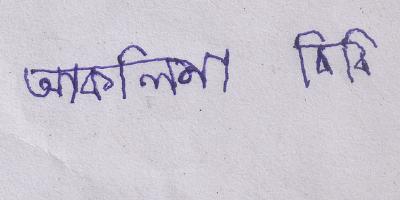 আকলিমা বিবি